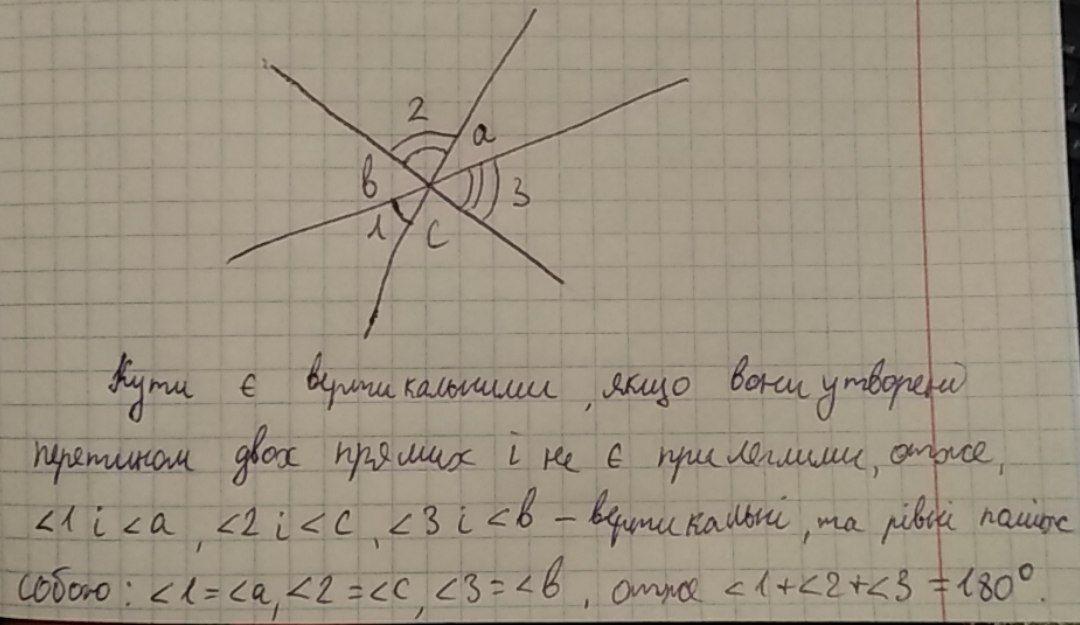 2
a
в
3
1
с
Кути є вертикальними, якщо вони утворені
перетином двох прямих і не є прилеглими, отже,
<1 і <a, <2 і <с, <3 і <в – вертикальні, та рівні поміж
собою: <1=<a, <2=<с, <3=<в, отже <1+<2+<3=180°.